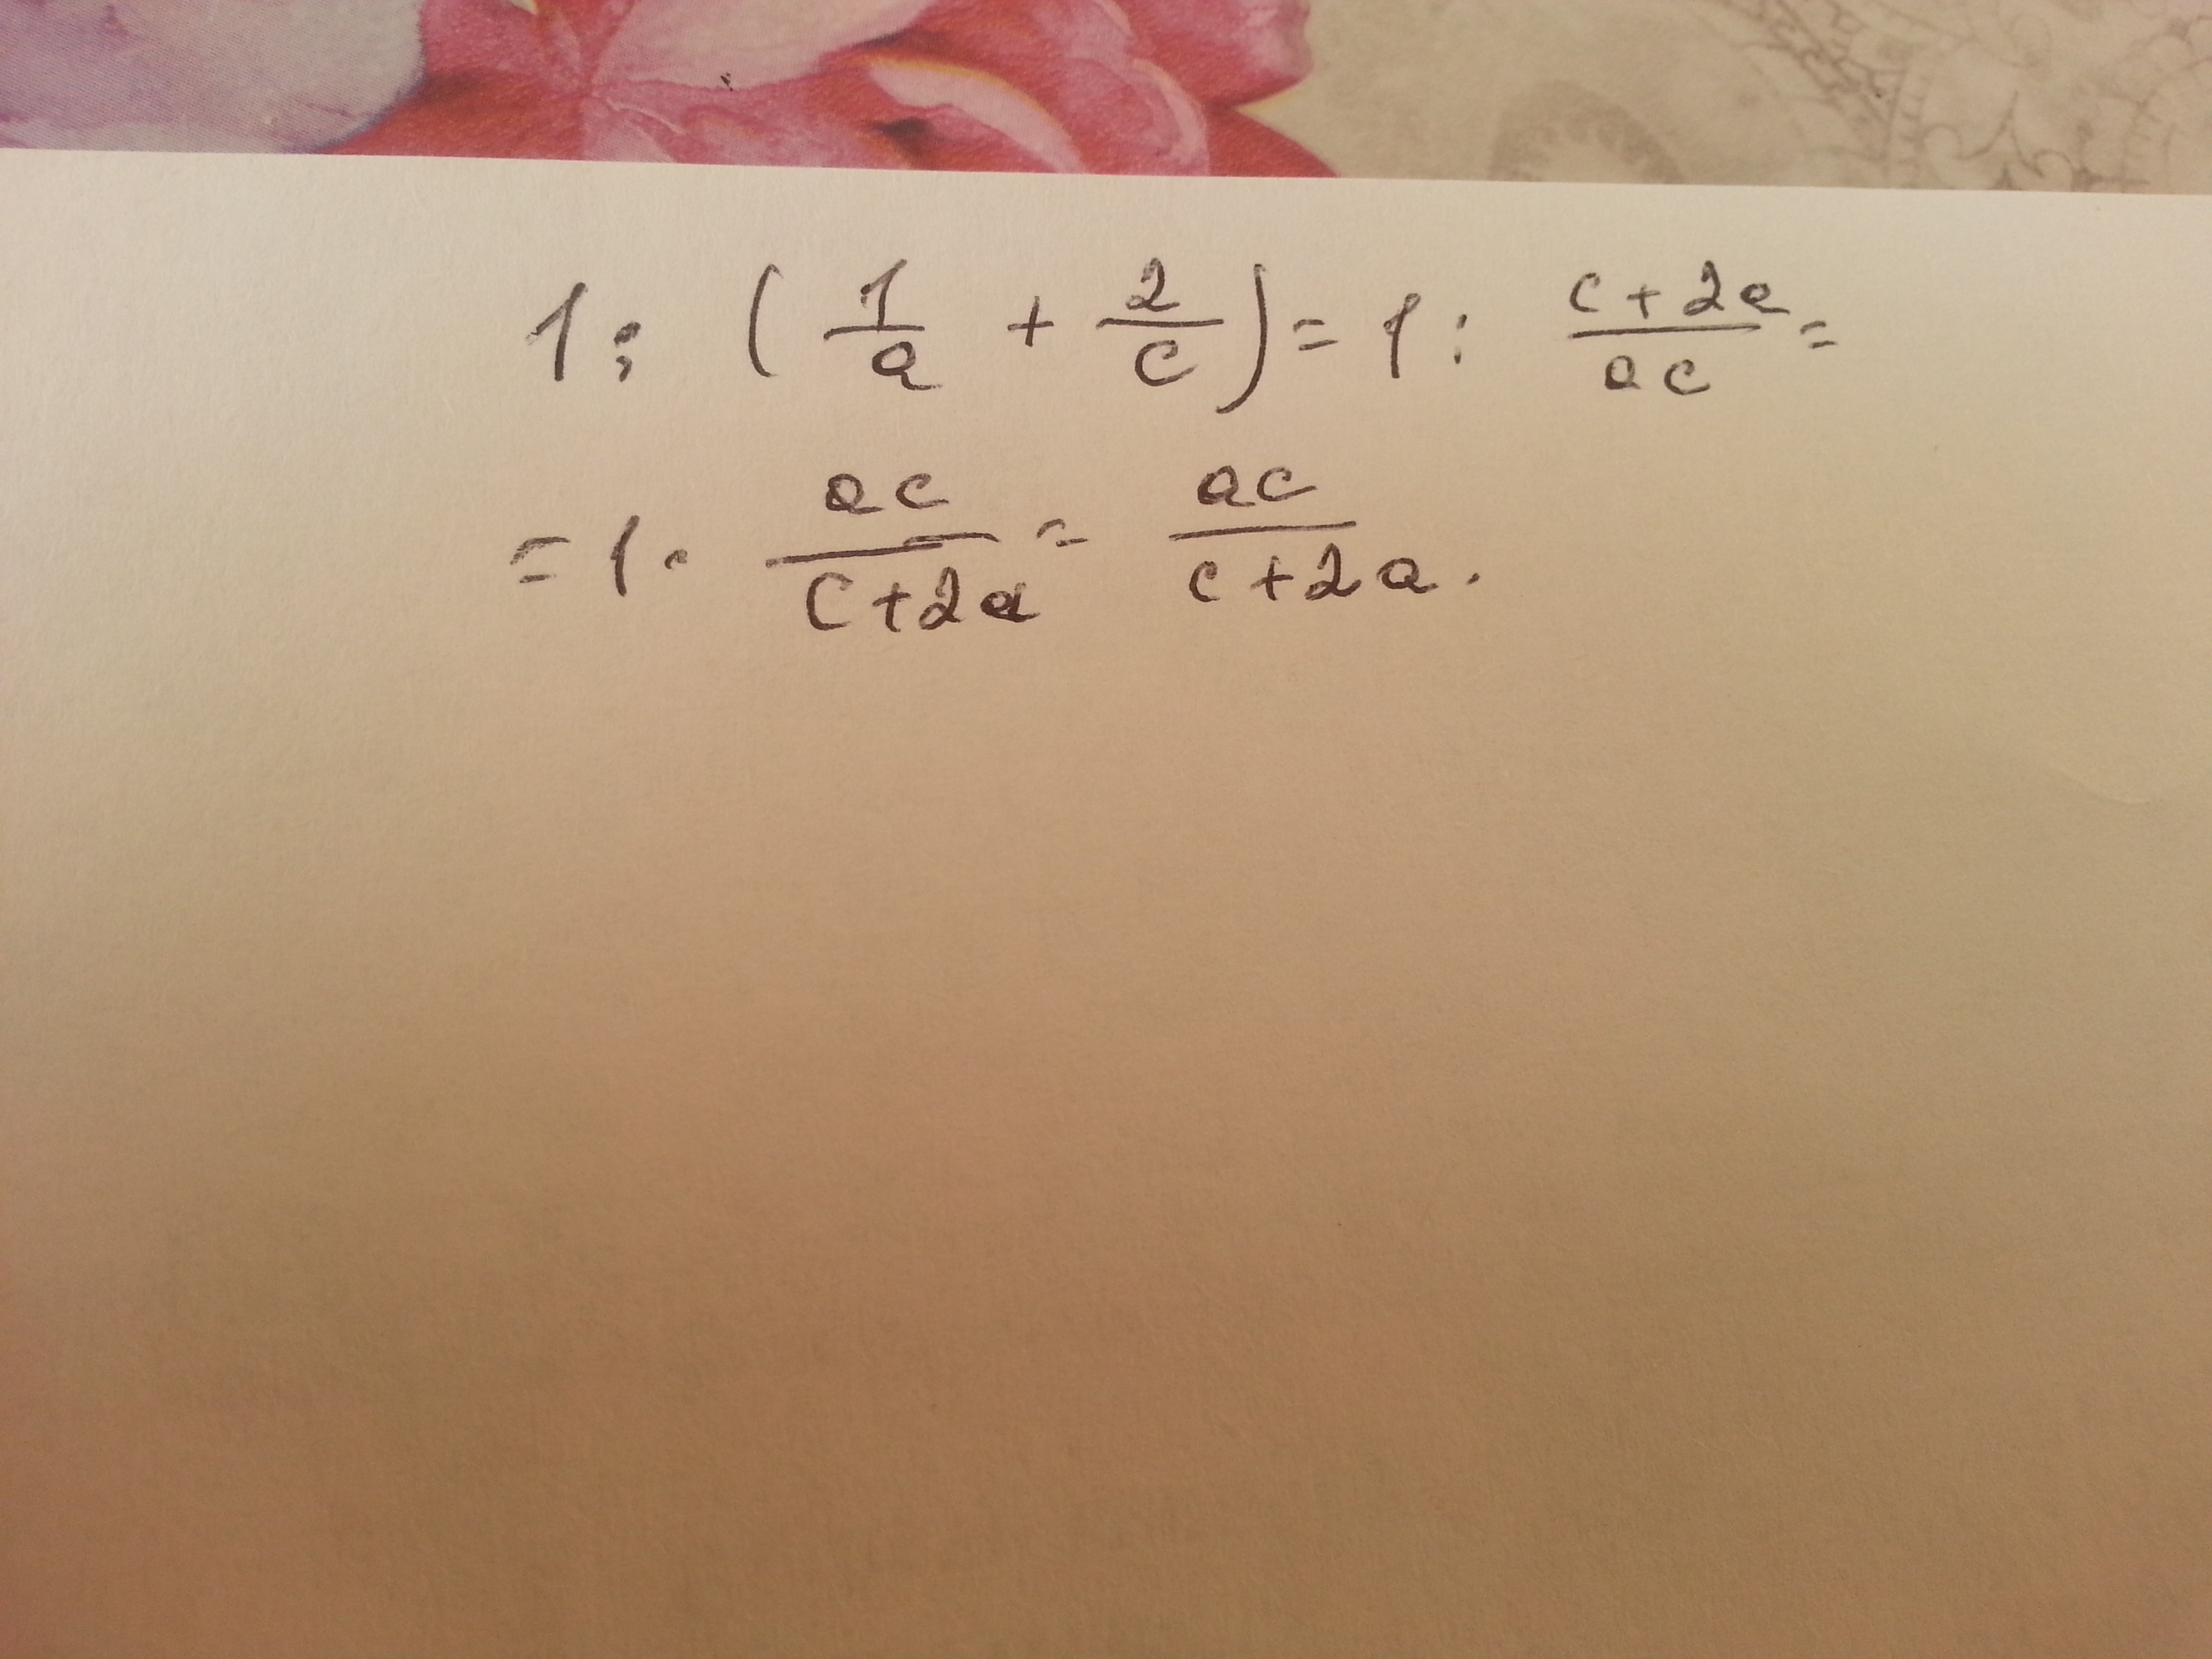 1 : (1/a + 2/c) = 1 : (c+2a)/(ac) =
= 1 · (ac)/(c+2a) = (ac)/(c+2a).